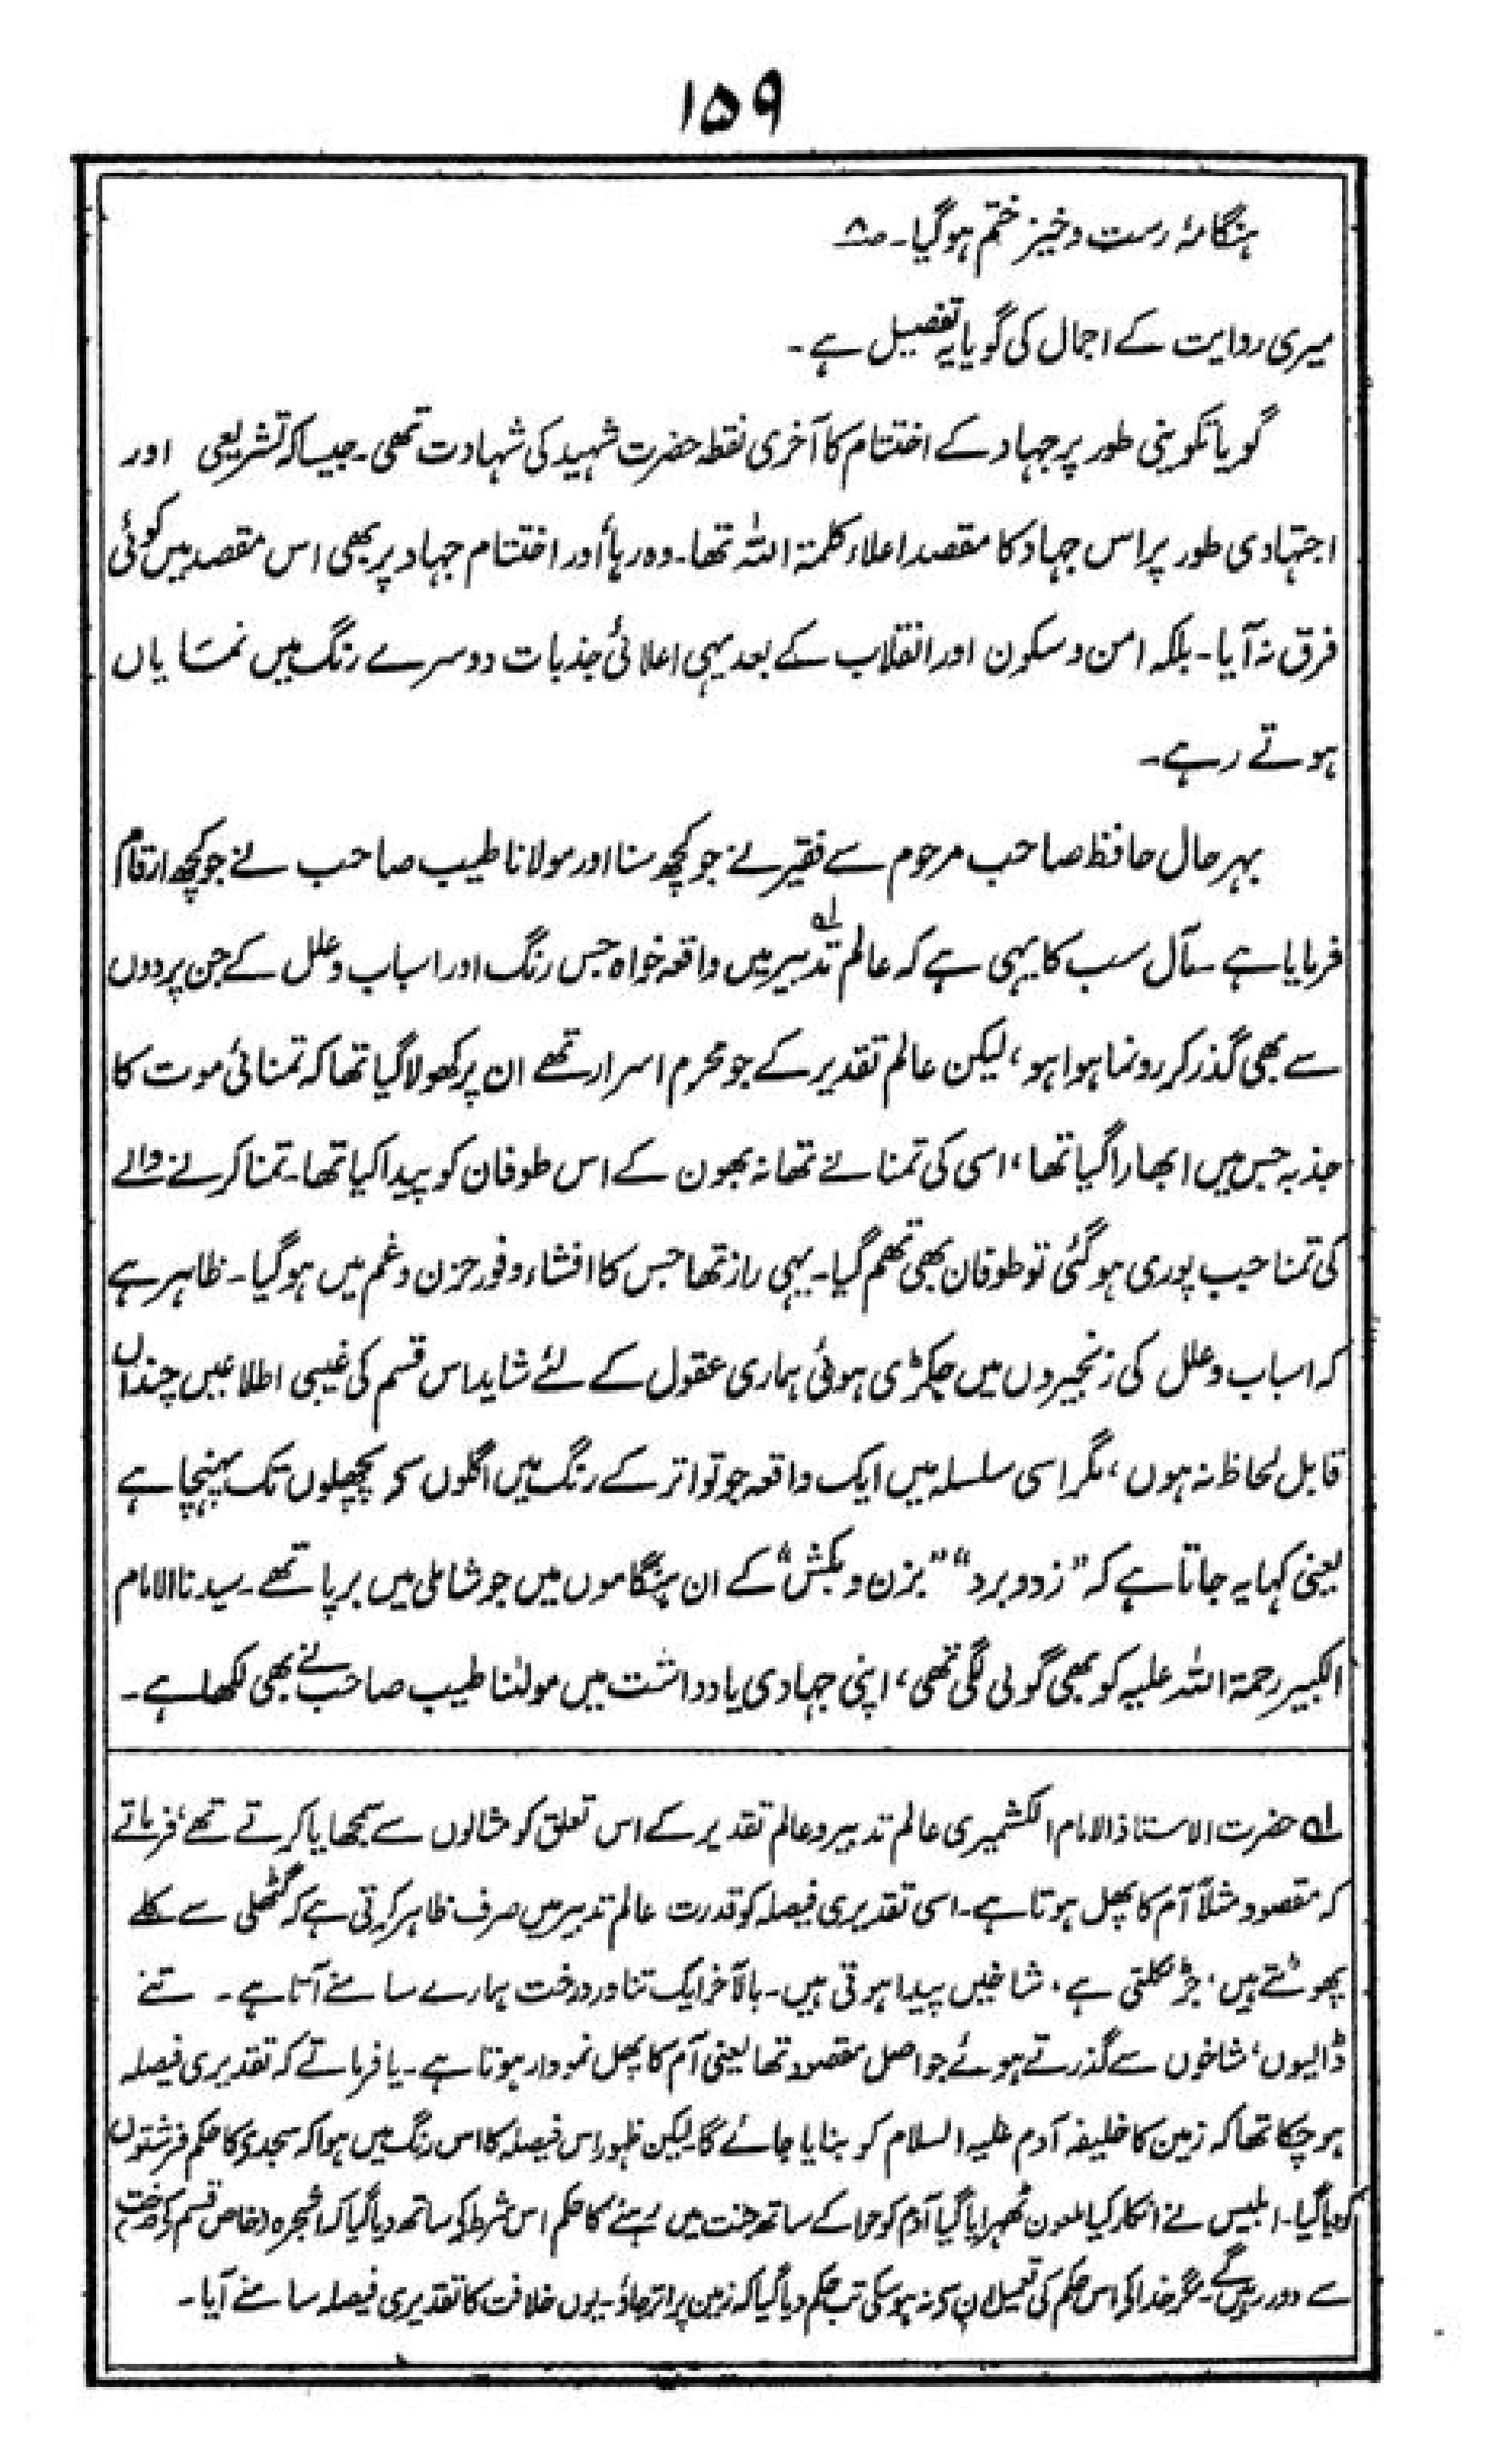 ۱۵۹
ہنگامۂ رست و خیز ختم ہوگیا۔ ص۸
میری روایت کے اجمال کی گویا یہ تفصیل ہے۔
گویا تکوینی طور پر جہاد کے اختتام کا آخری نقطہ حضرت شہید کی شہادت تھی۔ جیسا کہ تشریعی اور
اجتہادی طور پر اس جہاد کا مقصد اعلاء کلمۃ اللہ تھا۔ وہ رہا اور اختتام جہاد پر بھی اس مقصد میں کوئی
فرق نہ آیا۔ بلکہ امن و سکون اور انقلاب کے بعد یہی اعلائی جذبات دوسرے رنگ میں نمایاں
ہوتے رہے۔
بہر حال حافظ صاحب مرحوم سے فقیر نے جو کچھ سنا اور مولانا طیب صاحب نے جو کچھ ارقام
فرمایا ہے۔ مآل سب کا یہی ہے کہ عالم تدبیر لہ میں واقعہ خواہ جس رنگ اور اسباب و علل کے جن پردوں
سے بھی گذر کر رونما ہوا ہو، لیکن عالم تقدیر کے جو محرم اسرار تھے ان پر کھولا گیا تھا کہ تمنائی موت کا
جذبہ جس میں ابھارا گیا تھا، اسی کی تمنا نے تھانہ بھون کے اس طوفان کو پیدا کیا تھا۔ تمنا کرنے والے
کی تمنا جب پوری ہوگئی تو طوفان بھی تھم گیا۔ یہی راز تھا جس کا افشاء وفور حزن و غم میں ہوگیا۔ ظاہر ہے
کہ اسباب و علل کی زنجیروں میں جکڑی ہوئی ہماری عقول کے لئے شاید اس قسم کی غیبی اطلاعیں چنداں
قابل لحاظ نہ ہوں، مگر اسی سلسلہ میں ایک واقعہ جو تواتر کے رنگ میں اگلوں سے پچھلوں تک پہنچا ہے
یعنی کہا یہ جاتا ہے کہ "زد و برد" "بزن و بکش" کے ان ہنگاموں میں جو شاملی میں برپا تھے۔ سیدنا الامام
الکبیر رحمۃ اللہ علیہ کو بھی گولی لگی تھی، اپنی جہادی یادداشت میں مولٰنا طیب صاحب نے بھی لکھا ہے۔
لہ حضرت الاستاذ الامام الکشمیری عالم تدبیر و عالم تقدیر کے اس تعلق کو مثالوں سے سمجھایا کرتے تھے، فرماتے
کہ مقصود مثلاً آم کا پھل ہوتا ہے۔ اسی تقدیری فیصلہ کو قدرت عالم تدبیر میں صرف ظاہر کرتی ہے کہ گٹھلی سے کلے
پھوٹتے ہیں، جڑ نکلتی ہے، شاخیں پیدا ہوتی ہیں۔ بالآخر ایک تناور درخت ہمارے سامنے آتا ہے۔ تنے
ڈالیوں، شاخوں سے گذرتے ہوئے جو اصل مقصود تھا یعنی آم کا پھل نمودار ہوتا ہے۔ یا فرماتے کہ تقدیری فیصلہ
ہوچکا تھا کہ زمین کا خلیفہ آدم علیہ السلام کو بنایا جائے گا لیکن ظہور اس فیصلہ کا اس رنگ میں ہوا کہ سجدے کا حکم فرشتوں
کو دیا گیا۔ ابلیس نے انکار کیا ملعون ٹھہرایا گیا آدم کو حوا کے ساتھ جنت میں رہنے کا حکم اس شرط کے ساتھ دیا گیا کہ الشجرہ (خاص قسم کے درخت)
سے دور رہیں گے۔ مگر خدا کے اس حکم کی تعمیل ان سے نہ ہوسکی تب حکم دیا گیا کہ زمین پر اتر جاؤ۔ یوں خلافت کا تقدیری فیصلہ سامنے آیا۔